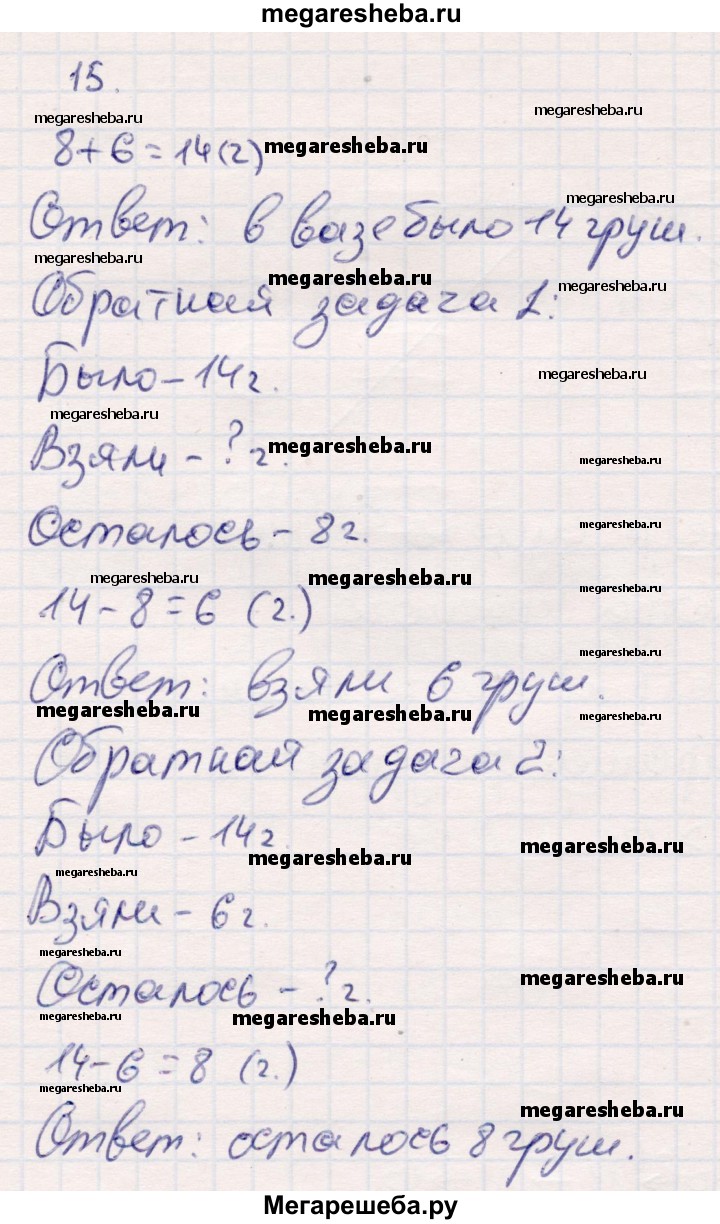 megaresheba.ru
15.
megaresheba.ru
megaresheba.ru
8+6=14(г)
megaresheba.ru
megaresheba.ru
Ответ: в вазе было 14 груш.
megaresheba.ru
megaresheba.ru
megaresheba.ru
Обратная задача 1:
Было - 14 г.
megaresheba.ru
megaresheba.ru
Взяли - ? г.
megaresheba.ru
megaresheba.ru
Осталось - 8 г.
megaresheba.ru
megaresheba.ru
megaresheba.ru
14 - 8 = 6 (г.)
megaresheba.ru
megaresheba.ru
Ответ: взяли 6 груш.
megaresheba.ru
megaresheba.ru
megaresheba.ru
Обратная задача 2:
Было - 14 г.
megaresheba.ru
megaresheba.ru
megaresheba.ru
Взяли - 6 г.
megaresheba.ru
Осталось - ? г.
megaresheba.ru
megaresheba.ru
megaresheba.ru
14 - 6 = 8 (г.)
megaresheba.ru
megaresheba.ru
Ответ: осталось 8 груш.
Мегарешеба.ру